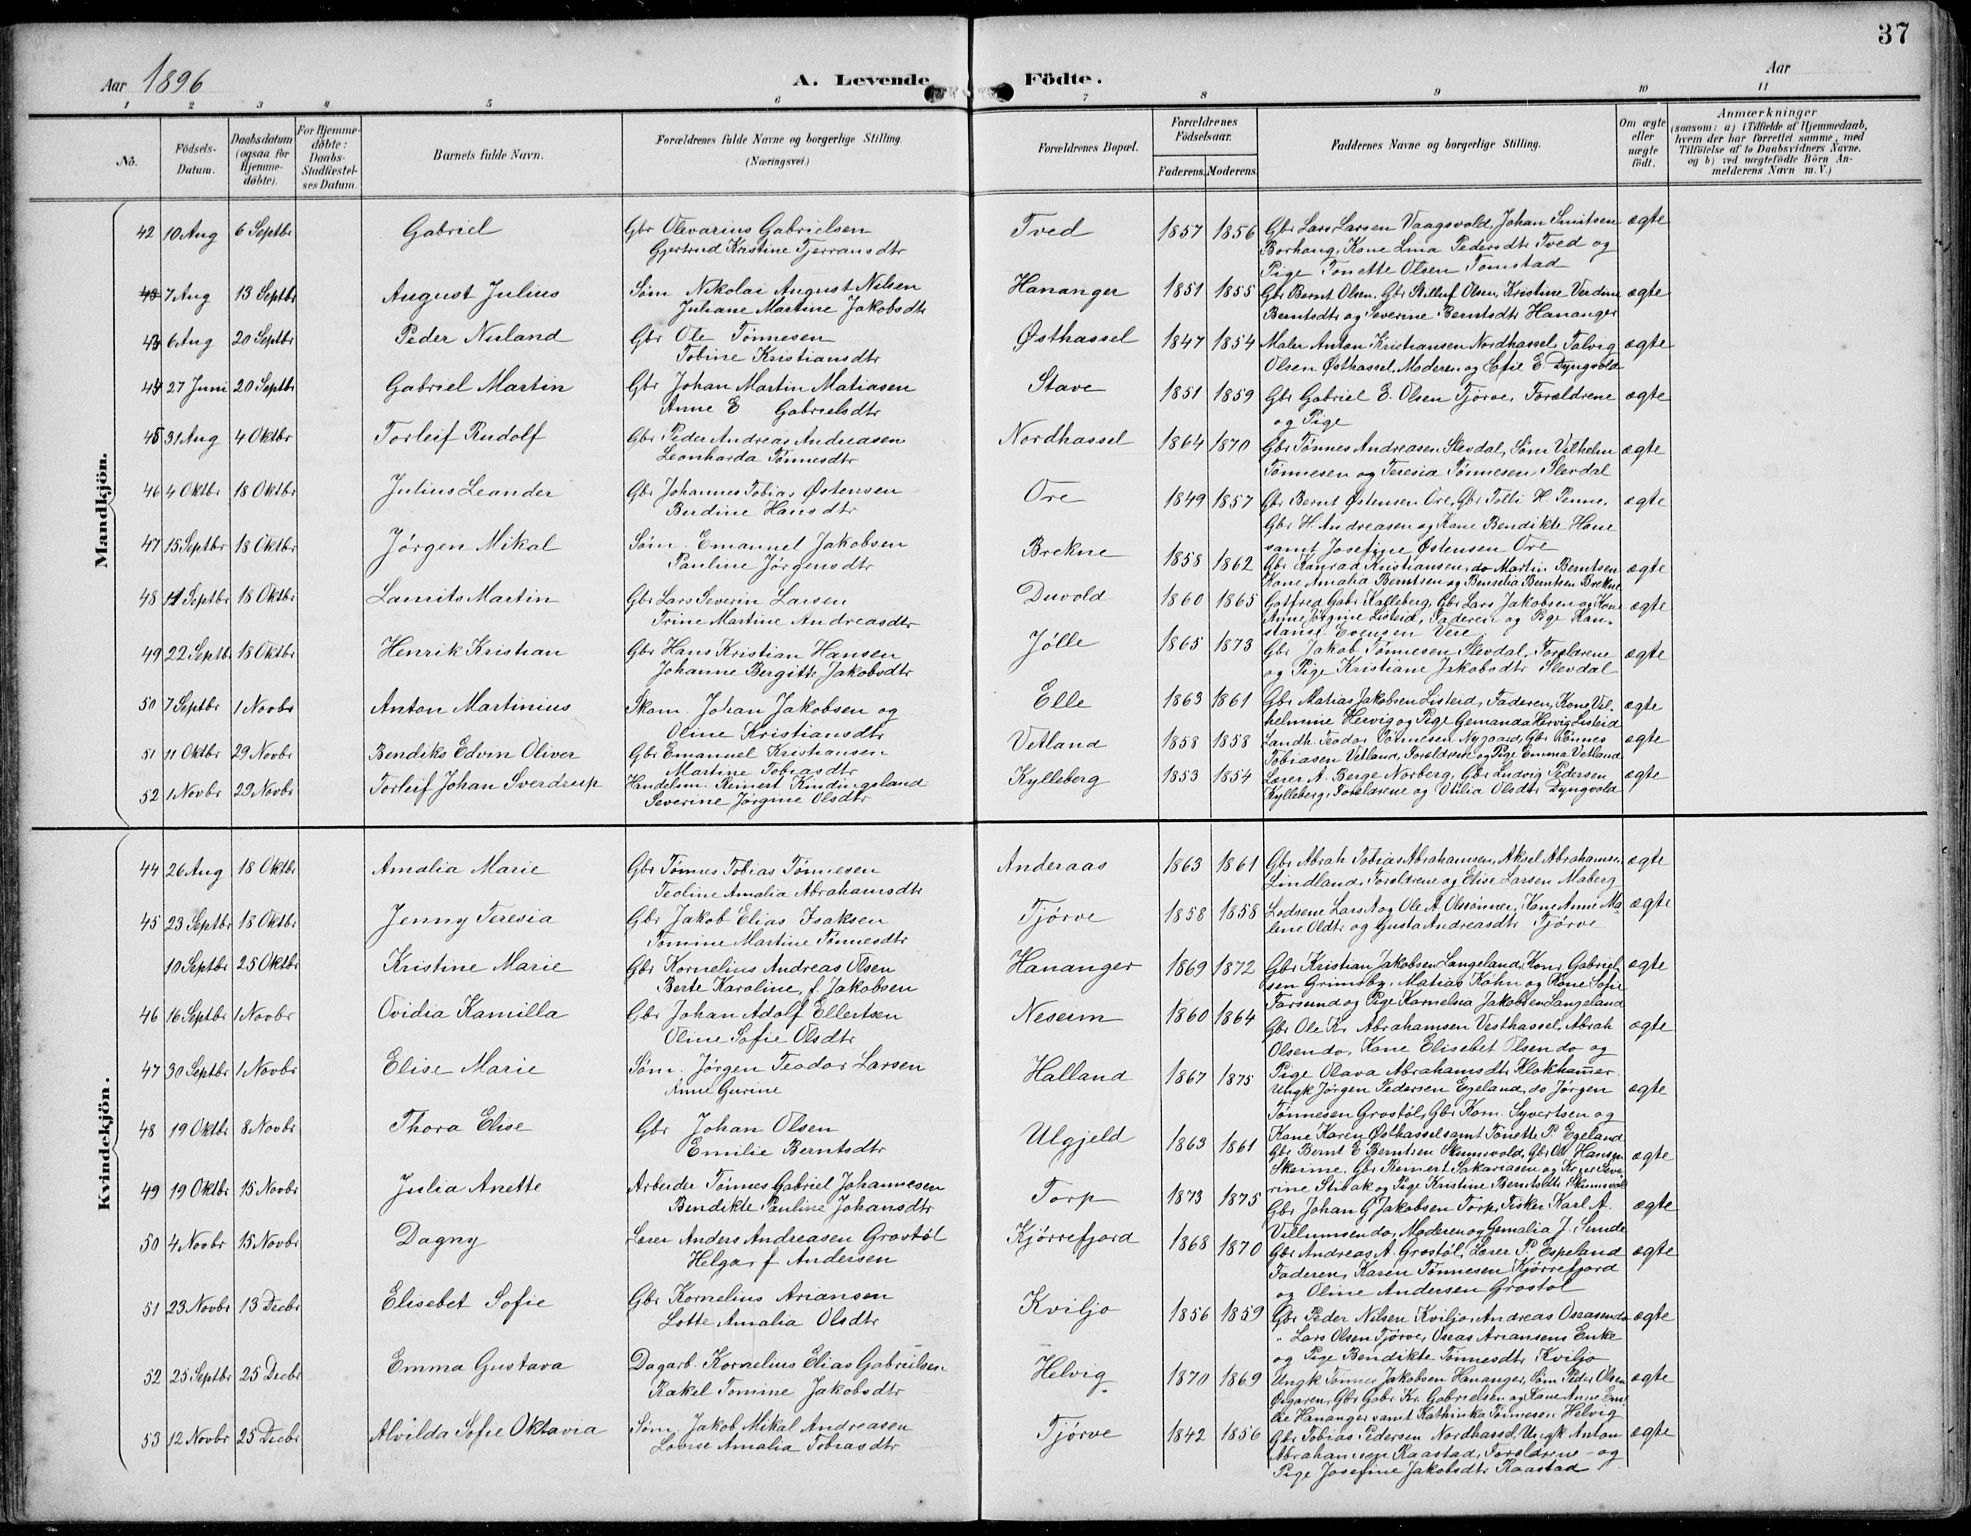 37
Aar 1896 A. Levende Födte. Aar
1 2 3 4 5 6 7 8 9 10 11
No. Födsels-Datum. Daabsdatum (ogsaa for Hjemme-døbte). For Hjemme-døbte: Daabs-Stadfæstelses Datum. Barnets fulde Navn. Forældrenes fulde Navne og borgerlige Stilling. (Næringsvei) Forældrenes Bopæl. Forældrenes Födselsaar. Faderens. Moderens. Faddernes Navne og borgerlige Stilling. Om ægte eller uægte födt. Anmærkninger (saasom: a) i Tilfælde af Hjemmedaab, hvem der har forrettet samme, med Tilföielse af to Daabsvidners Navne. og b) ved uægtefödte Börn Anmelderens Navn m. V.)
Mandkjön.
42 10 Aug 6 Septbr Gabriel Gbr Olevarius Gabrielsen Tved 1857 1856 Gbr Lars Larsen Vaagsvold, Johan Smitsen ægte
Gjertrud Kristine Tjerransdtr Borhaug, Kone Lina Pedersdtr Tved og
Pige Tonette Olsen Tomstad
43 7 Aug 13 Septbr August Julius Søm. Nikolai August Nilsen Hananger 1851 1855 Gbr Bernt Olsen, Gbr Olsen, Kristine Verdine ægte
Juliane Martine Jakobsdtr Berntsdtr og Severine Berntsdtr Hananger
43 6 Aug 20 Septbr Peder Nuland Gbr Ole Tønnesen Østhassel 1847 1854 Maler Anton Kristiansen Nordhassel, Talvig ægte
Tobine Kristiansdtr Olsen Østhassel, Moderen og Sofie E. Dyngvold
44 27 Juni 20 Septbr Gabriel Martin Gbr Johan Martin Matiasen Stave 1851 1859 Gbr Gabriel E. Olsen Tjørve, Forældrene ægte
Anne E Gabrielsdtr og Pige
45 31 Aug 4 Oktbr Torleif Rudolf Gbr Peder Andreas Andreasen Nordhassel 1864 1870 Gbr Tønnes Andreasen Slevdal, Søm Vilhelm ægte
Leonharda Tønnesdtr Tønnesen og Teresia Tønnesen Slevdal
46 4 Oktbr 18 Oktbr Julius Leander Gbr Johannes Tobias Østensen Ore 1849 1857 Gbr Bernt Østensen Ore, Gbr Tolli H. Penne, ægte
Berdine Hansdtr Gbr H. Andreasen og Kone Bendikte Hane
samt Josefine Østensen Ore
47 15 Septbr 18 Oktbr Jørgen Mikal Søm. Emanuel Jakobsen Brekne 1858 1862 Gbr Konrad Kristiansen, do Martin Berntsen ægte
Pauline Jørgensdtr Kone Amalia Berntsen og Benselia Berntsen Brekne
48 11 Septbr 18 Oktbr Laurits Martin Gbr Lars Severin Larsen Duvold 1860 1865 Gotfred Gabr. Kalleberg, Gbr Lars Jakobsen og Kone ægte
Trine Martine Andreasdtr Anne Jørgine Listeid, Faderen og Pige Konstanse Evensen Vere
49 22 Septbr 18 Oktbr Henrik Kristian Gbr Hans Kristian Hansen Jølle 1865 1873 Gbr Jakob Tønnesen Slevdal, Forældrene ægte
Johanne Bergitte Jakobsdtr og Pige Kristiane Jakobsdtr Slevdal
50 7 Septbr 1 Novbr Anton Martinius Skom. Johan Jakobsen og Elle 1863 1861 Gbr Matias Jakobsen Listeid, Faderen, Kone Vil- ægte
Oline Kristiansdtr helmine Hervig og Pige Gemanda Hervig Listeid
51 11 Oktbr 29 Novbr Bendiks Edvin Oliver Gbr Emanuel Kristiansen Vetland 1858 1858 Landh. Teodor Tønnesen Nygaard, Gbr Tønnes ægte
Martine Tobiasdtr Tobiasen Vetland, Forældrene og Pige Emma Vetland
52 1 Novbr 29 Novbr Torleif Johan Sverdrup Handelsm. Reinert Kindingsland Kylleberg 1853 1854 Lærer A. Berge Norberg, Gbr Ludvig Pedersen ægte
Severine Jørgine Olsdtr Kylleberg, Forældrene og Otilia Olsdtr Dyngvold
Kvindekjön.
44 26 Aug 18 Oktbr Amalia Marie Gbr Tønnes Tobias Tønnesen Anderaas 1863 1861 Gbr Abrah. Tobias Abrahamsen, Aksel Abrahamsen ægte
Teoline Amalia Abrahamsdtr Lindland, Forældrene og Elise Larsen Maberg
45 23 Septbr 18 Oktbr Jenny Teresia Gbr Jakob Elias Isaksen Tjørve 1858 1858 Lodsene Lars A og Ole A Olssønner, Kone Anne Ma- ægte
Tomine Martine Tønnesdtr lene Oldtr og Gusta Andreasdtr Tjørve
10 Septbr 25 Oktbr Kristine Marie Gbr Kornelius Andreas Olsen Hananger 1869 1872 Gbr Kristian Jakobsen Langeland, Kone Gabriel- ægte
Berte Karoline, f. Jakobsen sen Grimsby, Matias Kohn og Kone Sofie
Farsund og Pige Kornelia Jakobsen Langeland
46 16 Septbr 1 Novbr Ovidia Kamilla Gbr Johan Adolf Ellertsen Neseim 1860 1864 Gbr Ole Kr. Abrahamsen Vesthassel, Abrah ægte
Oline Sofie Olsdtr Olsen do, Kone Elisebet Olsen do og
Pige Olava Abrahamsdtr Klokhammer
47 30 Septbr 1 Novbr Elise Marie Søm. Jørgen Teodor Larsen Halland 1867 1875 Ungk Jørgen Pedersen Egeland, do Jørgen ægte
Anne Gurine Tønnesen Grostøl, Gbr Korn. Syvertsen og
Kone Karen Østhassel samt Tonette P. Egeland
48 19 Oktbr 8 Novbr Thora Elise Gbr Johan Olsen Ulgjeld 1863 1861 Gbr Bernt E Berntsen Skumsvold, Gbr Ole Hansen ægte
Emilie Berntsdtr Skeime, Gbr Reinert Sakariasen og Kone Severine Stibak og Pige Kristine Berntsdtr Skumsvol
49 19 Oktbr 15 Novbr Julia Anette Arbeider Tønnes Gabriel Johannesen Torp 1873 1875 Gbr Johan G Jakobsen Torp, Fisker Karl A. ægte
Bendikte Pauline Johansdtr Villumsen do, Moderen og Gemalia J. Sunde
50 4 Novbr 15 Novbr Dagny Lærer Anders Andreasen Grostøl Kjørrefjord 1868 1870 Gbr Andreas A. Grostøl, Lærer P. Espeland ægte
Helga, f Andersen Faderen, Karen Tønnesen Kjørrefjord
og Oline Andersen Grostøl
51 23 Novbr 13 Decbr Elisebet Sofie Gbr Kornelius Ariansen Kviljo 1856 1859 Gbr Peder Nilsen Kviljo, Andreas Oseasen do ægte
Lotte Amalia Olsdtr " Lars Olsen Tjørve, Oseas Ariansens Enke
og Pige Bendikte Tønnesdtr Kviljo
52 25 Septbr 25 Decbr Emma Gustava Dagarb. Kornelius Elias Gabrielsen Helvig 1870 1869 Ungk Tønnes Jakobsen Hananger, Søm Peder Olsen ægte
Rakel Tomine Jakobsdtr Øigaren, Gbr Gabr. Kr. Gabrielsen og Kone Anne Emilie Hananger samt Kathinka Tønnesen Helvig
53 12 Novbr 25 Decbr Alvilda Sofie Oktavia Søm. Jakob Mikal Andreasen Tjørve 1842 1856 Gbr Tobias Pedersen Nordhassel, Ungk Anton ægte
Lovise Amalia Tobiasdtr Abrahamsen Raastad, Forældrene og
Pige Josefine Jakobsdtr Raastad